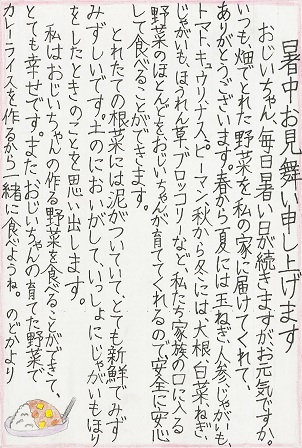 暑中お見舞い申し上げます
おじいちゃん、毎日暑い日が続きますが、お元気ですか。
いつも畑でとれた野菜を私の家に届けてくれて、
ありがとうございます。春から夏には玉ねぎ、人参、じゃがいも、
トマト、キュウリ、ナス、ピーマン、秋から冬には大根、白菜、ねぎ、
じゃがいも、ほうれん草、ブロッコリーなど、私たち家族の口に入る
野菜のほとんどをおじいちゃんが育ててくれるので、安全に安心
して食べることができます。
とれたての根菜には泥がついていて、とても新鮮でみず
みずしいです。土のにおいがして、いっしょにじゃがいもほり
をしたときのことを思い出します。
私はおじいちゃんの作る野菜を食べることができて、
とても幸せです。またおじいちゃんの育てた野菜で
カレーライスを作るから一緒に食べようね。のどかより